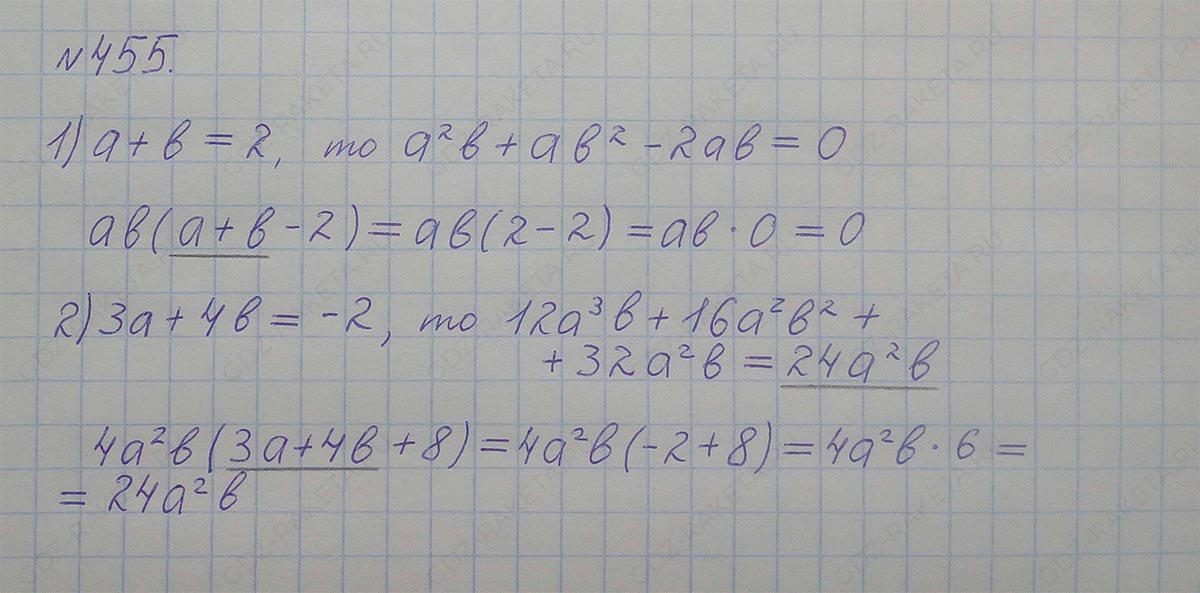 №455.
1) a + b = 2, то a²b + ab² - 2ab = 0
ab(a + b - 2) = ab(2 - 2) = ab · 0 = 0
2) 3a + 4b = -2, то 12a³b + 16a²b² +
+ 32a²b = 24a²b
4a²b(3a + 4b + 8) = 4a²b(-2 + 8) = 4a²b · 6 =
= 24a²b
GDZ-RAKETA.RU